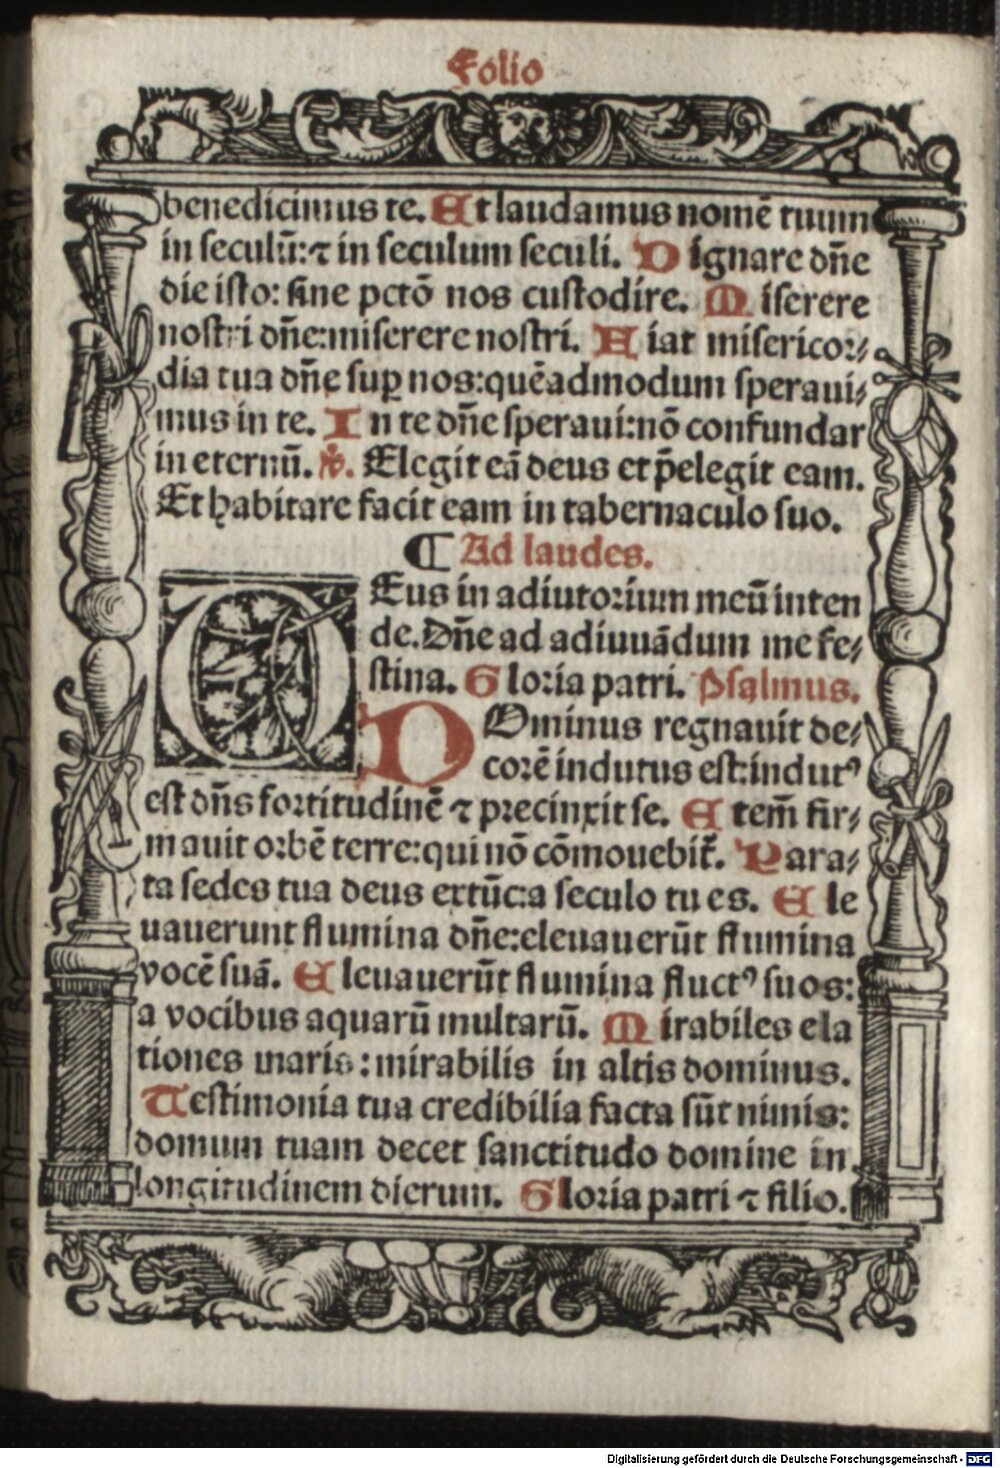 Folio
benedicimus te. Et laudamus nomē tuum
in seculū: ⁊ in seculum seculi. Dignare dn̄e
die isto: sine pctō nos custodire. Miserere
nostri dn̄e: miserere nostri. Fiat misericor⸗
dia tua dn̄e suꝑ nos: quēadmodum speraui⸗
mus in te. In te dn̄e speraui: nō confundar
in eternū. ℣. Elegit eā deus et p̄elegit eam.
Et habitare facit eam in tabernaculo suo.
¶ Ad laudes.
DEus in adiutorium meū inten
de. Dn̄e ad adiuuādum me fe⸗
stina. Gloria patri. Psalmus.
DOminus regnauit de⸗
corē indutus est: indutꝰ
est dn̄s fortitudinē ⁊ precinxit se. Etem̄ fir⸗
mauit orbē terre: qui nō cōmouebit̄. Para⸗
ta sedes tua deus extūc: a seculo tu es. Ele
uauerunt flumina dn̄e: eleuauerūt flumina
vocē suā. Eleuauerūt flumina fluctꝰ suos:
a vocibus aquarū multarū. Mirabiles ela
tiones maris: mirabilis in altis dominus.
Testimonia tua credibilia facta sūt nimis:
domum tuam decet sanctitudo domine in
longitudinem dierum. Gloria patri ⁊ filio.
Digitalisierung gefördert durch die Deutsche Forschungsgemeinschaft - DFG